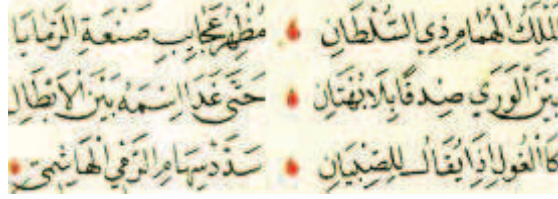 الْمَلِكِ الْهُمَامِ ذِي السُّلْطَانِ مُظْهِرُ عَجَايِبِ صَنْعَةِ الرَّمَايَا
بَيْنَ الْوَرَي صِدْقًا بِلَا بُهْتَانِ حَتَّى غَدَا اسْمُهُ بَيْنَ الْاَبْطَالِ
كَالْغُولِ اِذَا يُقَالُ لِلصِّبْيَانِ سَدِّدْ سِهَامَ الرَّمْيِ